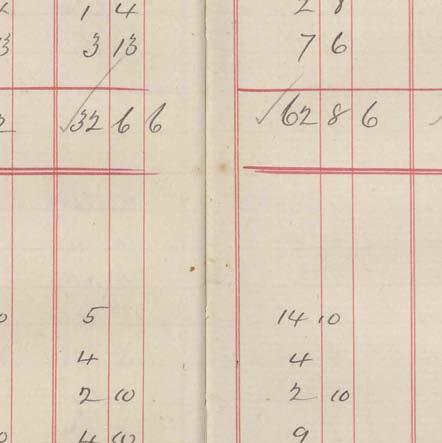 1 4 2 8
3 13 7 6
2 32 6 6 62 8 6
5 14 10
4 4
2 10 2 10
4 10 9